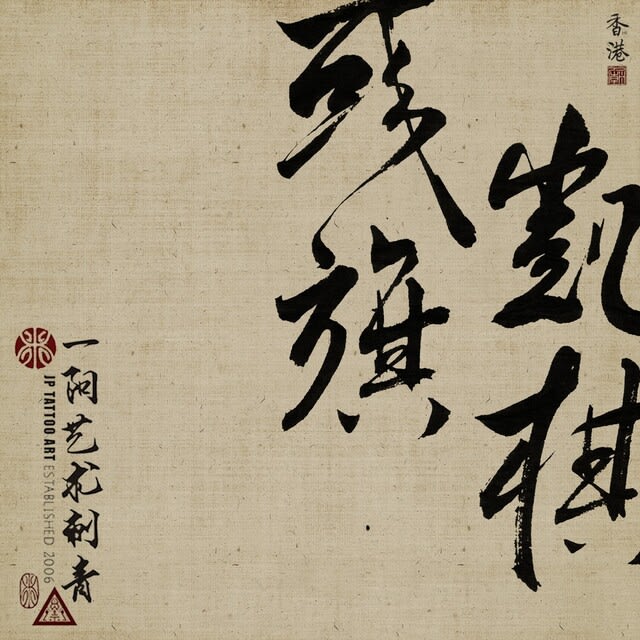 香港
凱棋
残旗
一阳艺术刺青
JP TATTOO ART ESTABLISHED 2006